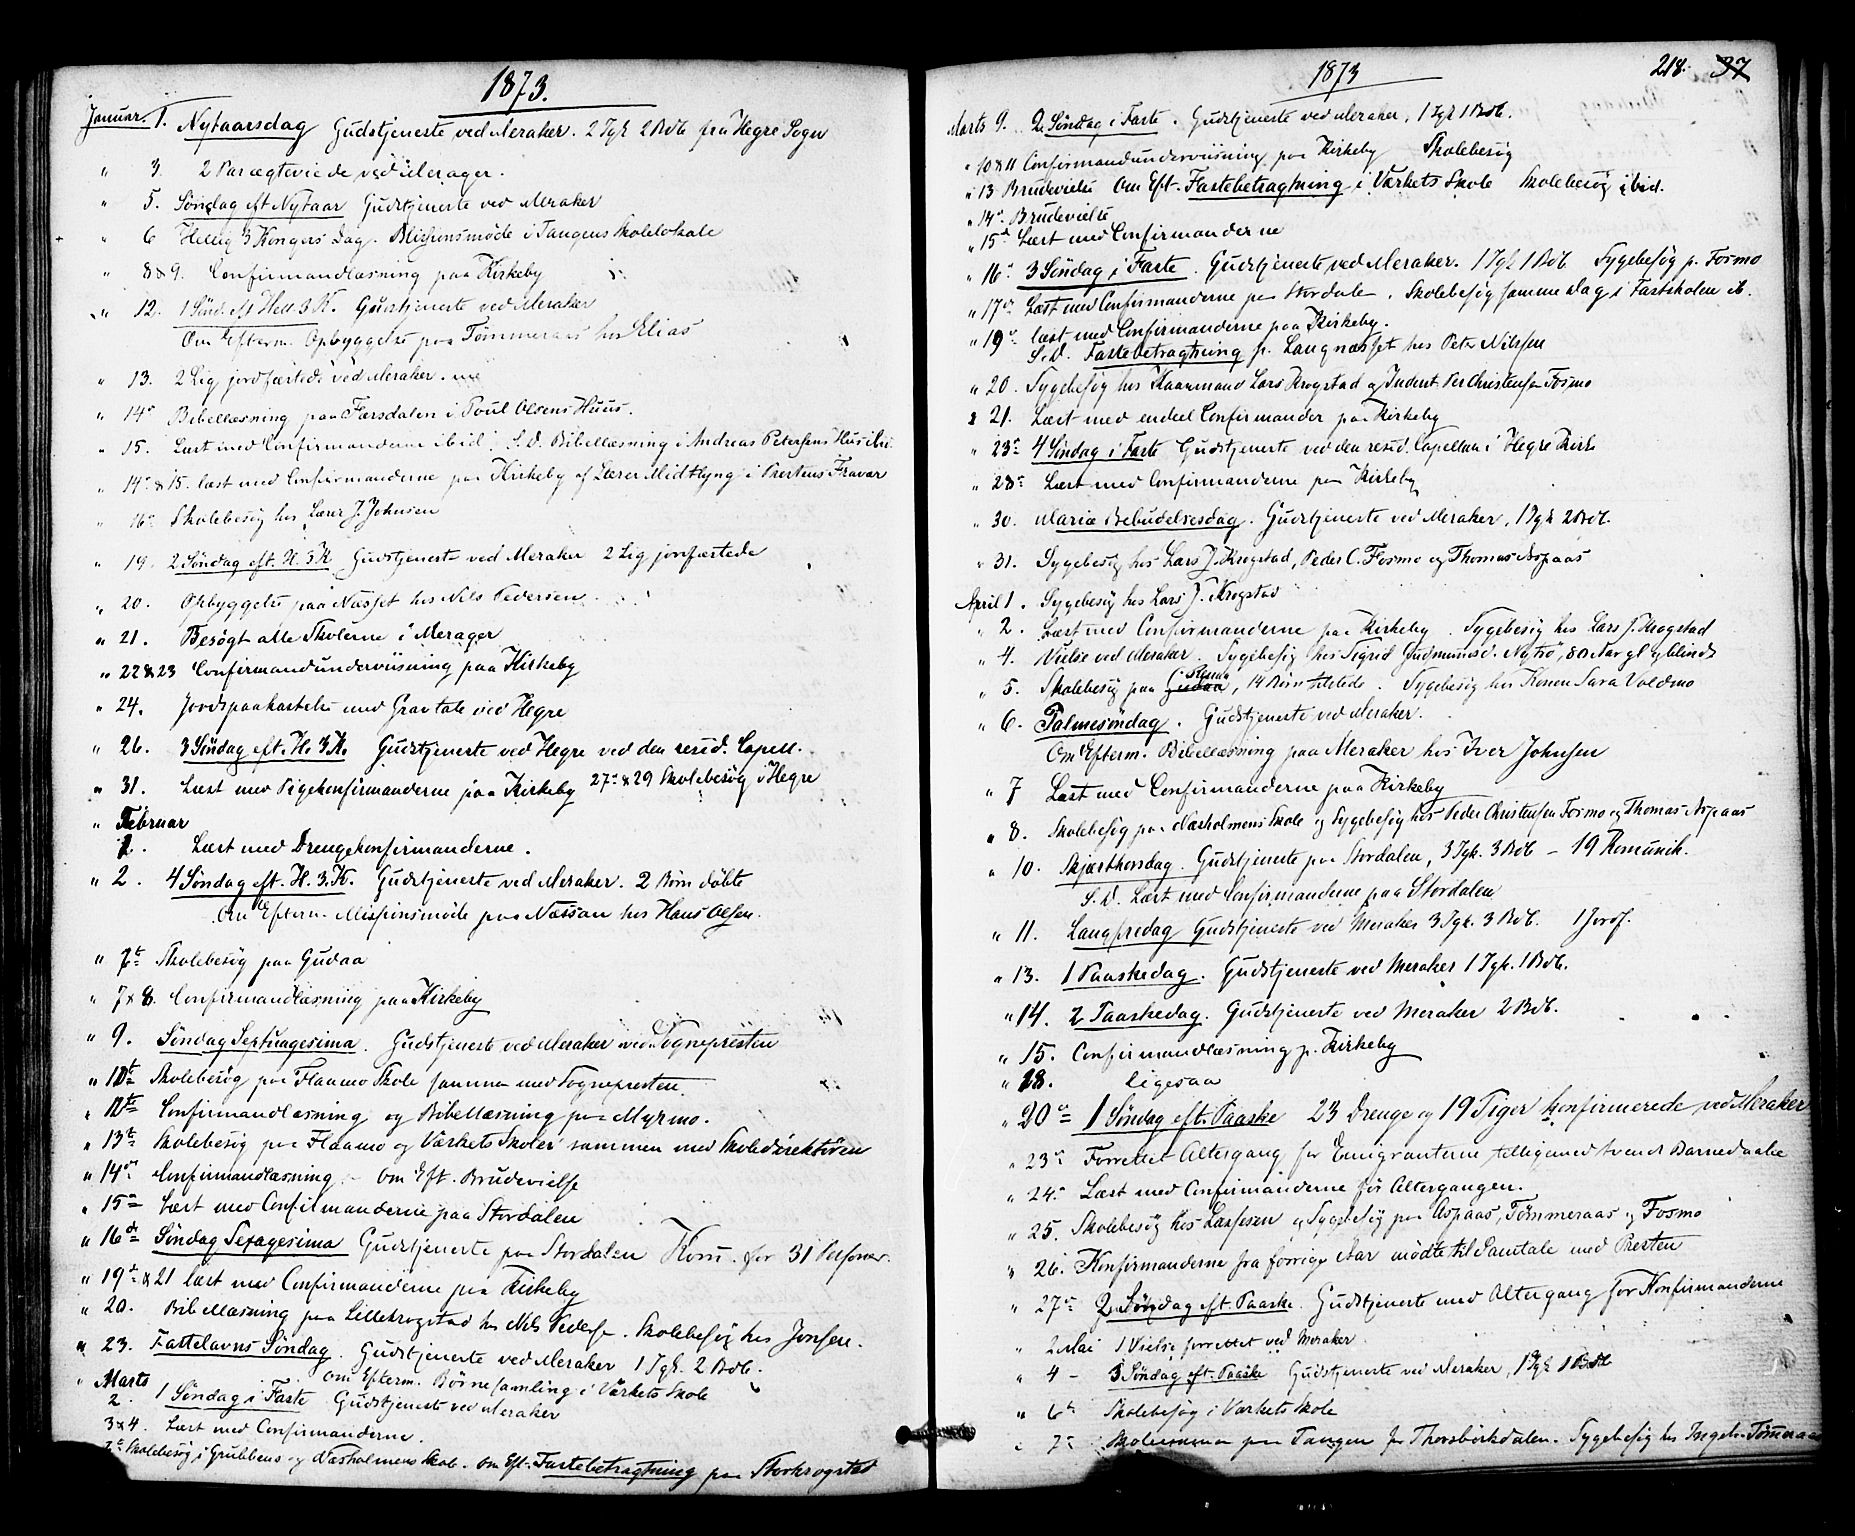 1873.
Januar. 1. Nytaarsdag Gudstjeneste ved Meraker. 2 Tgk 2 Bdb fra Hegre Sogn
" 3. 2 Par ægteviede ved Merager.
" 5. Søndag eft Nytaar Gudstjeneste ved Meraker
" 6 Hellig 3 Kongers Dag. Missionsmöde i Tangens Skolelokale
" 8 & 9. Confirmandlæsning paa Kirkeby
" 12. 1 Sönd. eft Hell 3 K. Gudstjeneste ved Meraker
Om Efterm. Opbyggelse paa Tömmeraas hos Elias
" 13. 2 Lig jordfæstede ved Meraker.
" 14de Bibellæsning paa Færsdalen i Poul Olsens Huus.
" 15. Læst med Confirmanderne ibid. S. D. Bibellæsning i Andreas Petersens Hus ibi.
" 14de & 15. læst med Confirmanderne paa Kirkeby af Lærer Midthyng i Prestens Fravær
" 16de Skolebesög hos Lærer J. Johnsen
" 19. 2 Söndag eft. H. 3 K Gudstjeneste ved Meraker 2 Lig jordfæstede
" 20. Opbyggelse paa Næsset hos Nils Pedersen
" 21. Besögt alle Skolerne i Merager
" 22 & 23 Confirmandunderviisning paa Kirkeby
" 24. Jordspaakastelse med Gravtale ved Hegre
" 26. 3 Söndag eft. H. 3 K. Gudstjeneste ved Hegre ved den resid. Capell.
" 31. Læst med Pigekonfirmanderne paa Kirkeby 27de & 29 Skolebesög i Hegre
" Februar
1. Læst med Drengekonfirmanderne.
" 2. 4 Söndag eft. H. 3. K. Gudstjeneste ved Meraker. 2 Börn döbte
Om Efterm. Missionsmöde paa Næssan hos Hans Olsen.
" 7de Skolebesög paa Gudaa
" 7 & 8. Confirmandlæsning paa Kirkeby
" 9. Söndag Septuagesima. Gudstjeneste ved Meraker ved Sognepresten
" Skolebesög paa Flaamo Skole sammen med Sognepresten.
" 12te Confirmandlæsning og Bibellæsning paa Myrmo.
" 13te Skolebesög paa Flaamo og Værkets Skoler sammen med Skoledirektören
" 14de Confirmandlæsning - om Eft. Brudevielse
" 15de Læst med Confirmanderne paa Stordalen
" 16de Söndag Sexagesima Gudstjeneste paa Stordalen Kom. for 31 Personer.
" 19de & 21 læst med Confirmanderne paa Kirkeby
" 20. Bibellæsning paa Lillekrogstad hos Nils Peders. Skolebesög hos Jonsen.
" 23. Fastelavns Söndag. Gudstjeneste ved Meraker 1 Tgk. 2 Bdb.
om Efterm. Börnesamling i Værkets Skole
" Marts
2. 1 Söndag i Faste Gudstjeneste ved Meraker
3 & 4. Læst med Confirmanderne.
Skolebesög i Grubbens og Næsholmens Skole. om Eft. Fastebetragtning paa Storkrogstad
1873
218. 37
Marts 9. 2 Söndag i Faste. Gudstjeneste ved Meraker, 1 Tgk 1 Bdb.
" 10 & 11 Confirmandunderviisning paa Kirkeby Skolebesög
" 13 Brudevielse Om Eft. Fastebetragtning i Værkets Skole Skolebesög ibid.
" 14de Brudevielse
" 15de Læst med Confirmanderne
" 16de 3 Söndag i Faste. Gudstjeneste ved Meraker. 1 Tgk 1 Bdb Sygebesög p. Fosmo
" 17de Læst med Confirmanderne paa Stordalen. Skolebesög samme Dag i Fastskolen ib.
" 19de læst med Confirmanderne paa Kirkeby.
S. D. Fastebetragtning p. Langnæsset hos Peter Nilssen
" 20. Sygebesög hos Kaarmand Lars Krogstad og Inderst Per Christensen Fosmo
" 21. Læst med endeel Confirmander paa Kirkeby
" 23de 4 Söndag i Faste Gudstjeneste ved den resid. Capellan i Hegre Kirke
" 28de Læst med Confirmanderne paa Kirkeby
" 30. Mariæ Bebudelsesdag. Gudstjeneste ved Meraker, 1 Tgk 2 Bdb.
" 31. Sygebesög hos Lars J. Krogstad, Peder C. Fosmo og Thomas Aspaas
April 1. Sygebesög hos Lars J. Krogstad
" 2. Læst med Confirmanderne paa Kirkeby. Sygebesög hos Lars J. Krogstad
" 4. Vielse ved Meraker. Sygebesög hos Sigrid Gudmunsd. Nytrö, 80 Aar gl. og blind
" 5. Skolebesög paa Gudaa, 14 Börn tilstede. Sygebesög hos Konen Sara Voldmo
" 6. Palmesöndag. Gudstjeneste ved Meraker.
Om Efterm. Bibellæsning paa Meraker hos Iver Johnsen
" 7 Læst med Confirmanderne paa Kirkeby
" 8. Skolebesög paa Næsholmens Skole og Sygebesög hos Peder Christensen Fosmo og Thomas Aspaas
" 10. Skjærthorsdag. Gudstjeneste paa Stordalen, 3 Tgk. 3 Bdb - 19 Komunik.
S. D. Læst med Confirmanderne paa Stordalen
" 11. Langfredag Gudstjeneste ved Meraker 3 Tgk. 3 Bdb. 1 Jordf.
" 13. 1 Paaskedag. Gudstjeneste ved Meraker 1 Tgk. 1 Bdb.
" 14. 2 Paaskedag. Gudstjeneste ved Meraker 2 Bdb.
" 15. Confirmandlæsning p. Kirkeby
" 18. ligesaa
" 20de 1 Söndag eft. Paaske 23 Drenge og 19 Piger konfirmerede ved Meraker
" 23de Forrettet Altergang for Emigranterne tilligemed tvende Barnedaabe
" 24de Læst med Confirmanderne för Altergangen.
" 25. Skolebesög hos Larssen og Sygebesög paa Aspaas, Tömmeraas og Fosmo
" 26. Konfirmanderne fra forrige Aar mödte til Samtale med Presten
" 27de 2 Söndag eft. Paaske. Gudstjeneste med Altergang for Konfirmanderne
" 2 Mai 1 Vielse forrettet ved Meraker.
" 4 - 3 Söndag eft. Paaske Gudstjeneste ved Meraker, 1 Tgk 1 Bdb
" 6te Skolebesög i Værkets Skole
" 7de paa Tangen for Thorsbirkdalen. Sygebesög hos Tömmeraas